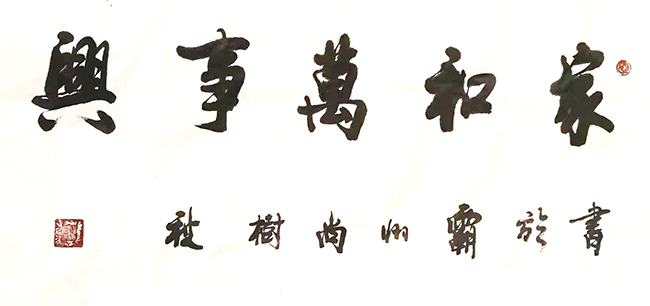 家和萬事興
書於霸州尚樹